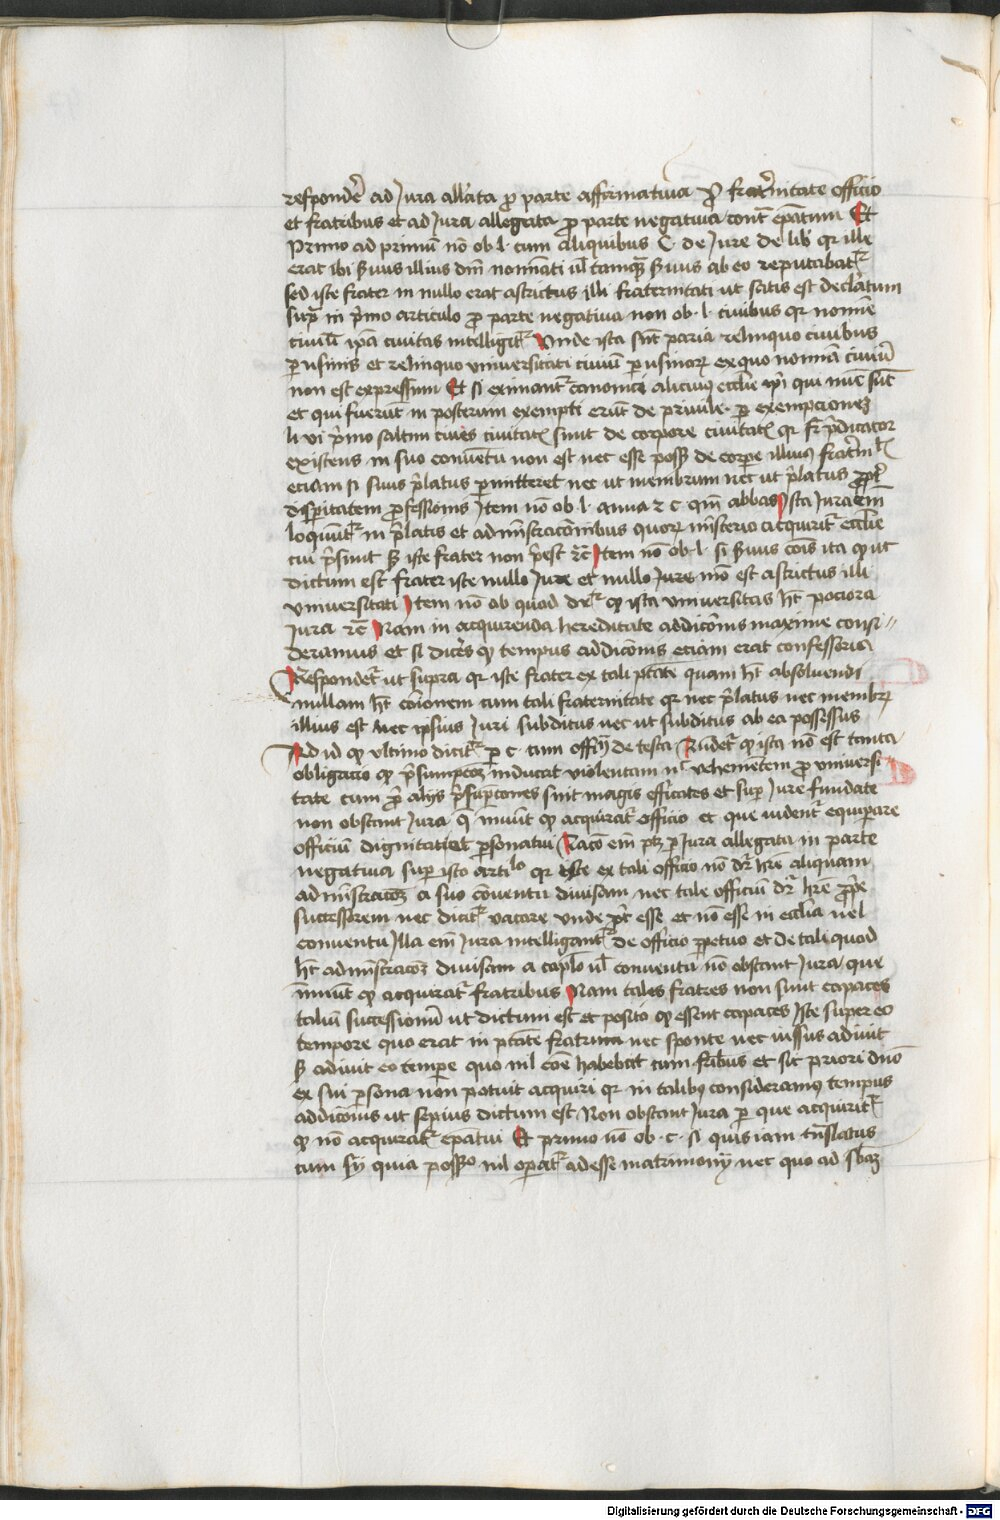 respondere ad Jura allata pro parte affirmativa pro fraternitate officio
et fratribus et ad Jura allegata pro parte negativa contra episcopatum Et
Primo ad primum nō ob. l. cum aliquibus C. de Jure de lib. qr ille
erat ibi suus illius dni nominati ul tamquam suus ab eo reputabatr
sed iste frater in nullo erat astrictus illi fraternitati ut satis est declaratum
supra in primo articulo pro parte negativa non ob. l. civibus qr nomine
civium ipsa civitas intelligitr Unde ista sunt paria relinquo civibus
et relinquo universitati civium ex quo nomina civium
non est expressum Et si eximantr canonici alicuius ecclesie qui nunc sunt
et qui fuerint in posterum exempti erunt de privile. per exempcionem
li vi primo saltim cives civitatis sunt de corpore civitatis qr fr predicator
existens in suo conventu non est nec esse posset de corpore illius fraternitatis
etiam si suus prelatus permitteret nec ut membrum nec ut prelatus propter
disparitatem professionis Item nō ob. l. annua et c. qm abbas Ista Jura enim
loquuntr in prelatis et administracionibus quorum misterio acquiritr ecclesie
cui presunt sed iste frater non preest etc Item nō ob. l. si suus cois ita quod ut
dictum est frater iste nullo Jure et nullo modo est astrictus illi
universitati Item nō ob quod dr quod ista universitas ht pociora
Jura etc Nam in acquirenda hereditate addicionis maxime consi
deramus et si diceres quod tempus addicionis etiam erat confessoria
Respondetr ut supra qr iste frater ex tali potestate quam ht absolvendi
nullam ht coionem cum tali fraternitate qr nec prelatus nec membrum
illius est nec ipsius Juri subditus nec ut subditus ab ea possessus
Ad id quod ultimo dicitr per c. cum officii de testa Rndetr quod ista nō est tanta
obligacio quod presumpcionem inducat violentam ul vehementem pro universi
tate cum pro aliis presumpciones sint magis efficaces et super Jure fundate
non obstant Jura que innuunt quod acquiratr officio et que videntr equiparare
officium dignitati vel personatui Racio enim patet per Jura allegata in parte
negativa super isto articulo qr iste ex tali officio nō dr hre aliquam
administracionem a suo conventu divisam nec tale officium dr hre proprie
successorem nec dicitr vacare unde potest esse et nō esse in ecclesia vel
conventu Illa enim Jura intelligantr de officio perpetuo et de tali quod
ht administracionem divisam a capitulo ul conventu nō obstant Jura que
innuunt quod acquiratr fratribus Nam tales fratres non sunt capaces
talium successionum ut dictum est et posito quod essent capaces Iste super eo
tempore quo erat in potestate fratrum nec sponte nec iussus adivit
sed adivit eo tempore quo nil coe habebat cum fratribus et sic priori domo
ex sui persona non potuit acquiri qr in talibus consideramus tempus
addicionis ut sepius dictum est Non obstant Jura per que acquiritr
quod nō acquiratr episcopatui Et primo nō ob. c. si quis iam translatus
cum sy quia nil operatr ad esse matrimonii nec quo ad